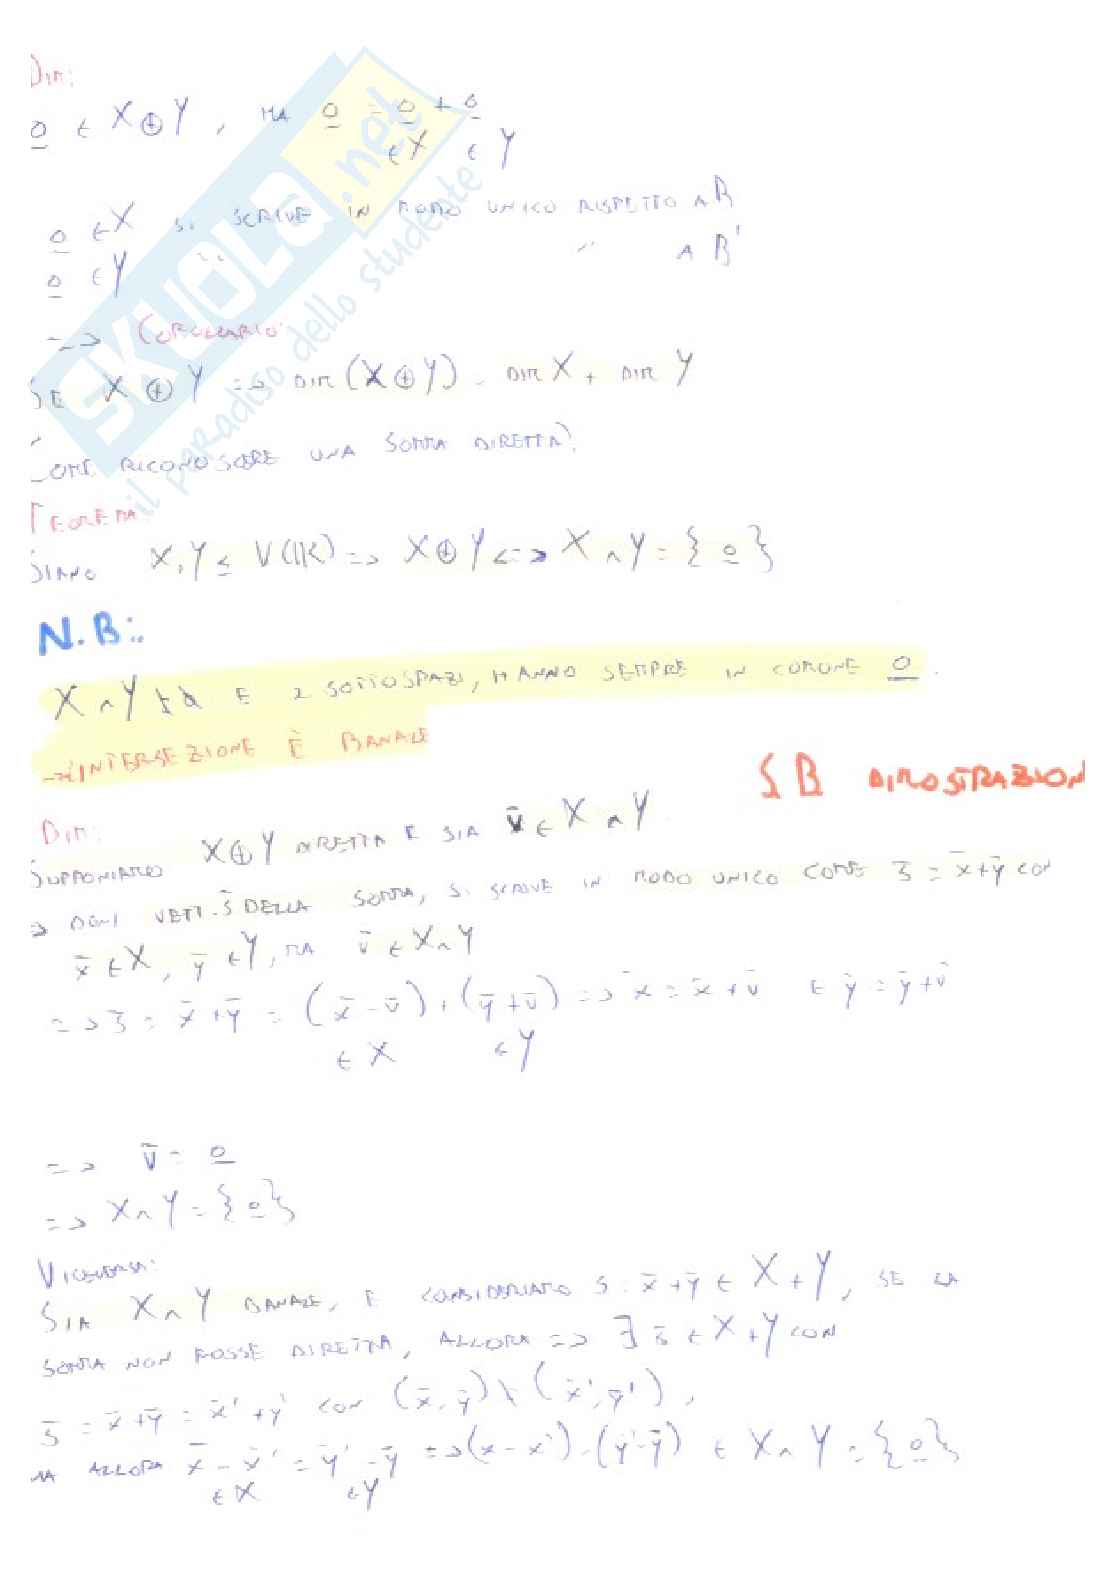 Dim:
0 ∈ X⊕Y, MA 0 = 0 + 0
∈X ∈Y
0 ∈X SI SCRIVE IN MODO UNICO RISPETTO A B
0 ∈Y " " A B'
=> COROLLARIO
SE X⊕Y => DIM(X⊕Y) = DIM X + DIM Y
COME RICONOSCERE UNA SOMMA DIRETTA?
TEOREMA
SIANO X,Y ≤ V(IK) => X⊕Y <=> X∩Y = {0}
N.B.:
X∩Y ≠ ∅ E 2 SOTTOSPAZI, HANNO SEMPRE IN COMUNE 0.
INTERSEZIONE È BANALE
SB DIMOSTRAZION
Dim:
SUPPONIAMO X⊕Y DIRETTA E SIA v̄ ∈ X∩Y.
=> OGNI VETT. s̄ DELLA SOMMA, SI SCRIVE IN MODO UNICO COME s̄ = x̄+ȳ CON
x̄ ∈X, ȳ ∈Y, MA v̄ ∈ X∩Y
=> s̄ = x̄+ȳ = (x̄-v̄)+(ȳ+v̄) => x̄ = x̄+v̄ E ȳ = ȳ+v̄
∈ X ∈ Y
=> v̄ = 0
=> X∩Y = {0}
VICEVERSA:
SIA X∩Y BANALE, E CONSIDERIAMO s: x̄+ȳ ∈ X+Y, SE LA
SOMMA NON FOSSE DIRETTA, ALLORA => ∃ s̄ ∈ X+Y CON
s̄ = x̄+ȳ = x̄'+y' CON (x̄,ȳ) \ (x̄',ȳ'),
MA ALLORA x̄-x̄' = ȳ'-ȳ => (x-x')-(y'-ȳ) ∈ X∩Y = {0}
∈X ∈Y
SKUOLA.net
il paradiso dello studente